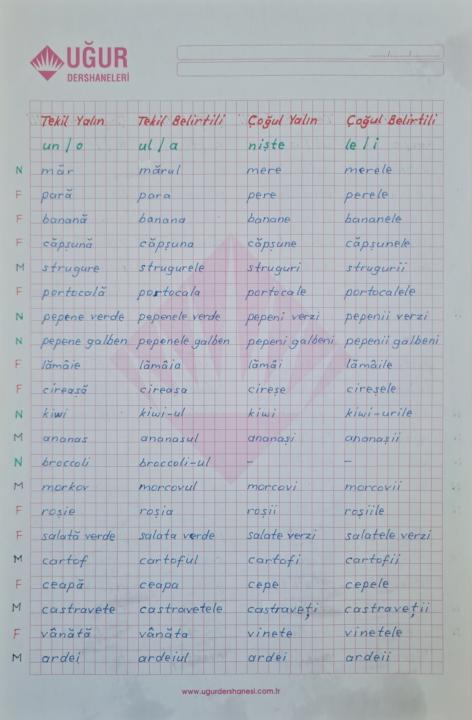 UĞUR
DERSHANELERİ
Tekil Yalın Tekil Belirtili Çoğul Yalın Çoğul Belirtili
un / o ul / a niște le / i
N măr mărul mere merele
F pară para pere perele
F banană banana banane bananele
F căpșună căpșuna căpșune căpșunele
M strugure strugurele struguri strugurii
F portocală portocala portocale portocalele
N pepene verde pepenele verde pepeni verzi pepenii verzi
N pepene galben pepenele galben pepeni galbeni pepenii galbeni
F lămâie lămâia lămâi lămâile
F cireașă cireașa cireșe cireșele
N kiwi kiwi-ul kiwi kiwi-urile
M ananas ananasul ananași ananașii
N broccoli broccoli-ul - -
M morkov morcovul morcovi morcovii
F roșie roșia roșii roșiile
F salată verde salata verde salate verzi salatele verzi
M cartof cartoful cartofi cartofii
F ceapă ceapa cepe cepele
M castravete castravetele castraveți castraveții
F vânătă vânăta vinete vinetele
M ardei ardeiul ardei ardeii
www.ugurdershanesi.com.tr